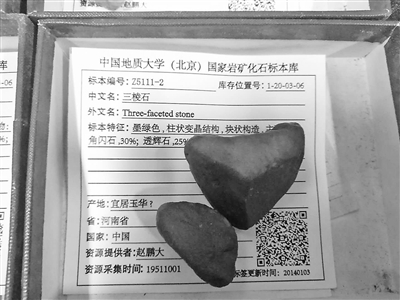 中国地质大学（北京）国家岩矿化石标本库
标本编号: Z5111-2 库存位置号: 1-20-03-06
中文名: 三棱石
外文名: Three-faceted stone
标本特征: 墨绿色，柱状变晶结构，块状构造，主
角闪石,30%; 透辉石,25%
产地: 宜居玉华?
省: 河南省
国家: 中国
资源提供者: 赵鹏大
资源采集时间: 19511001
标签更新时间: 20140103
03-06